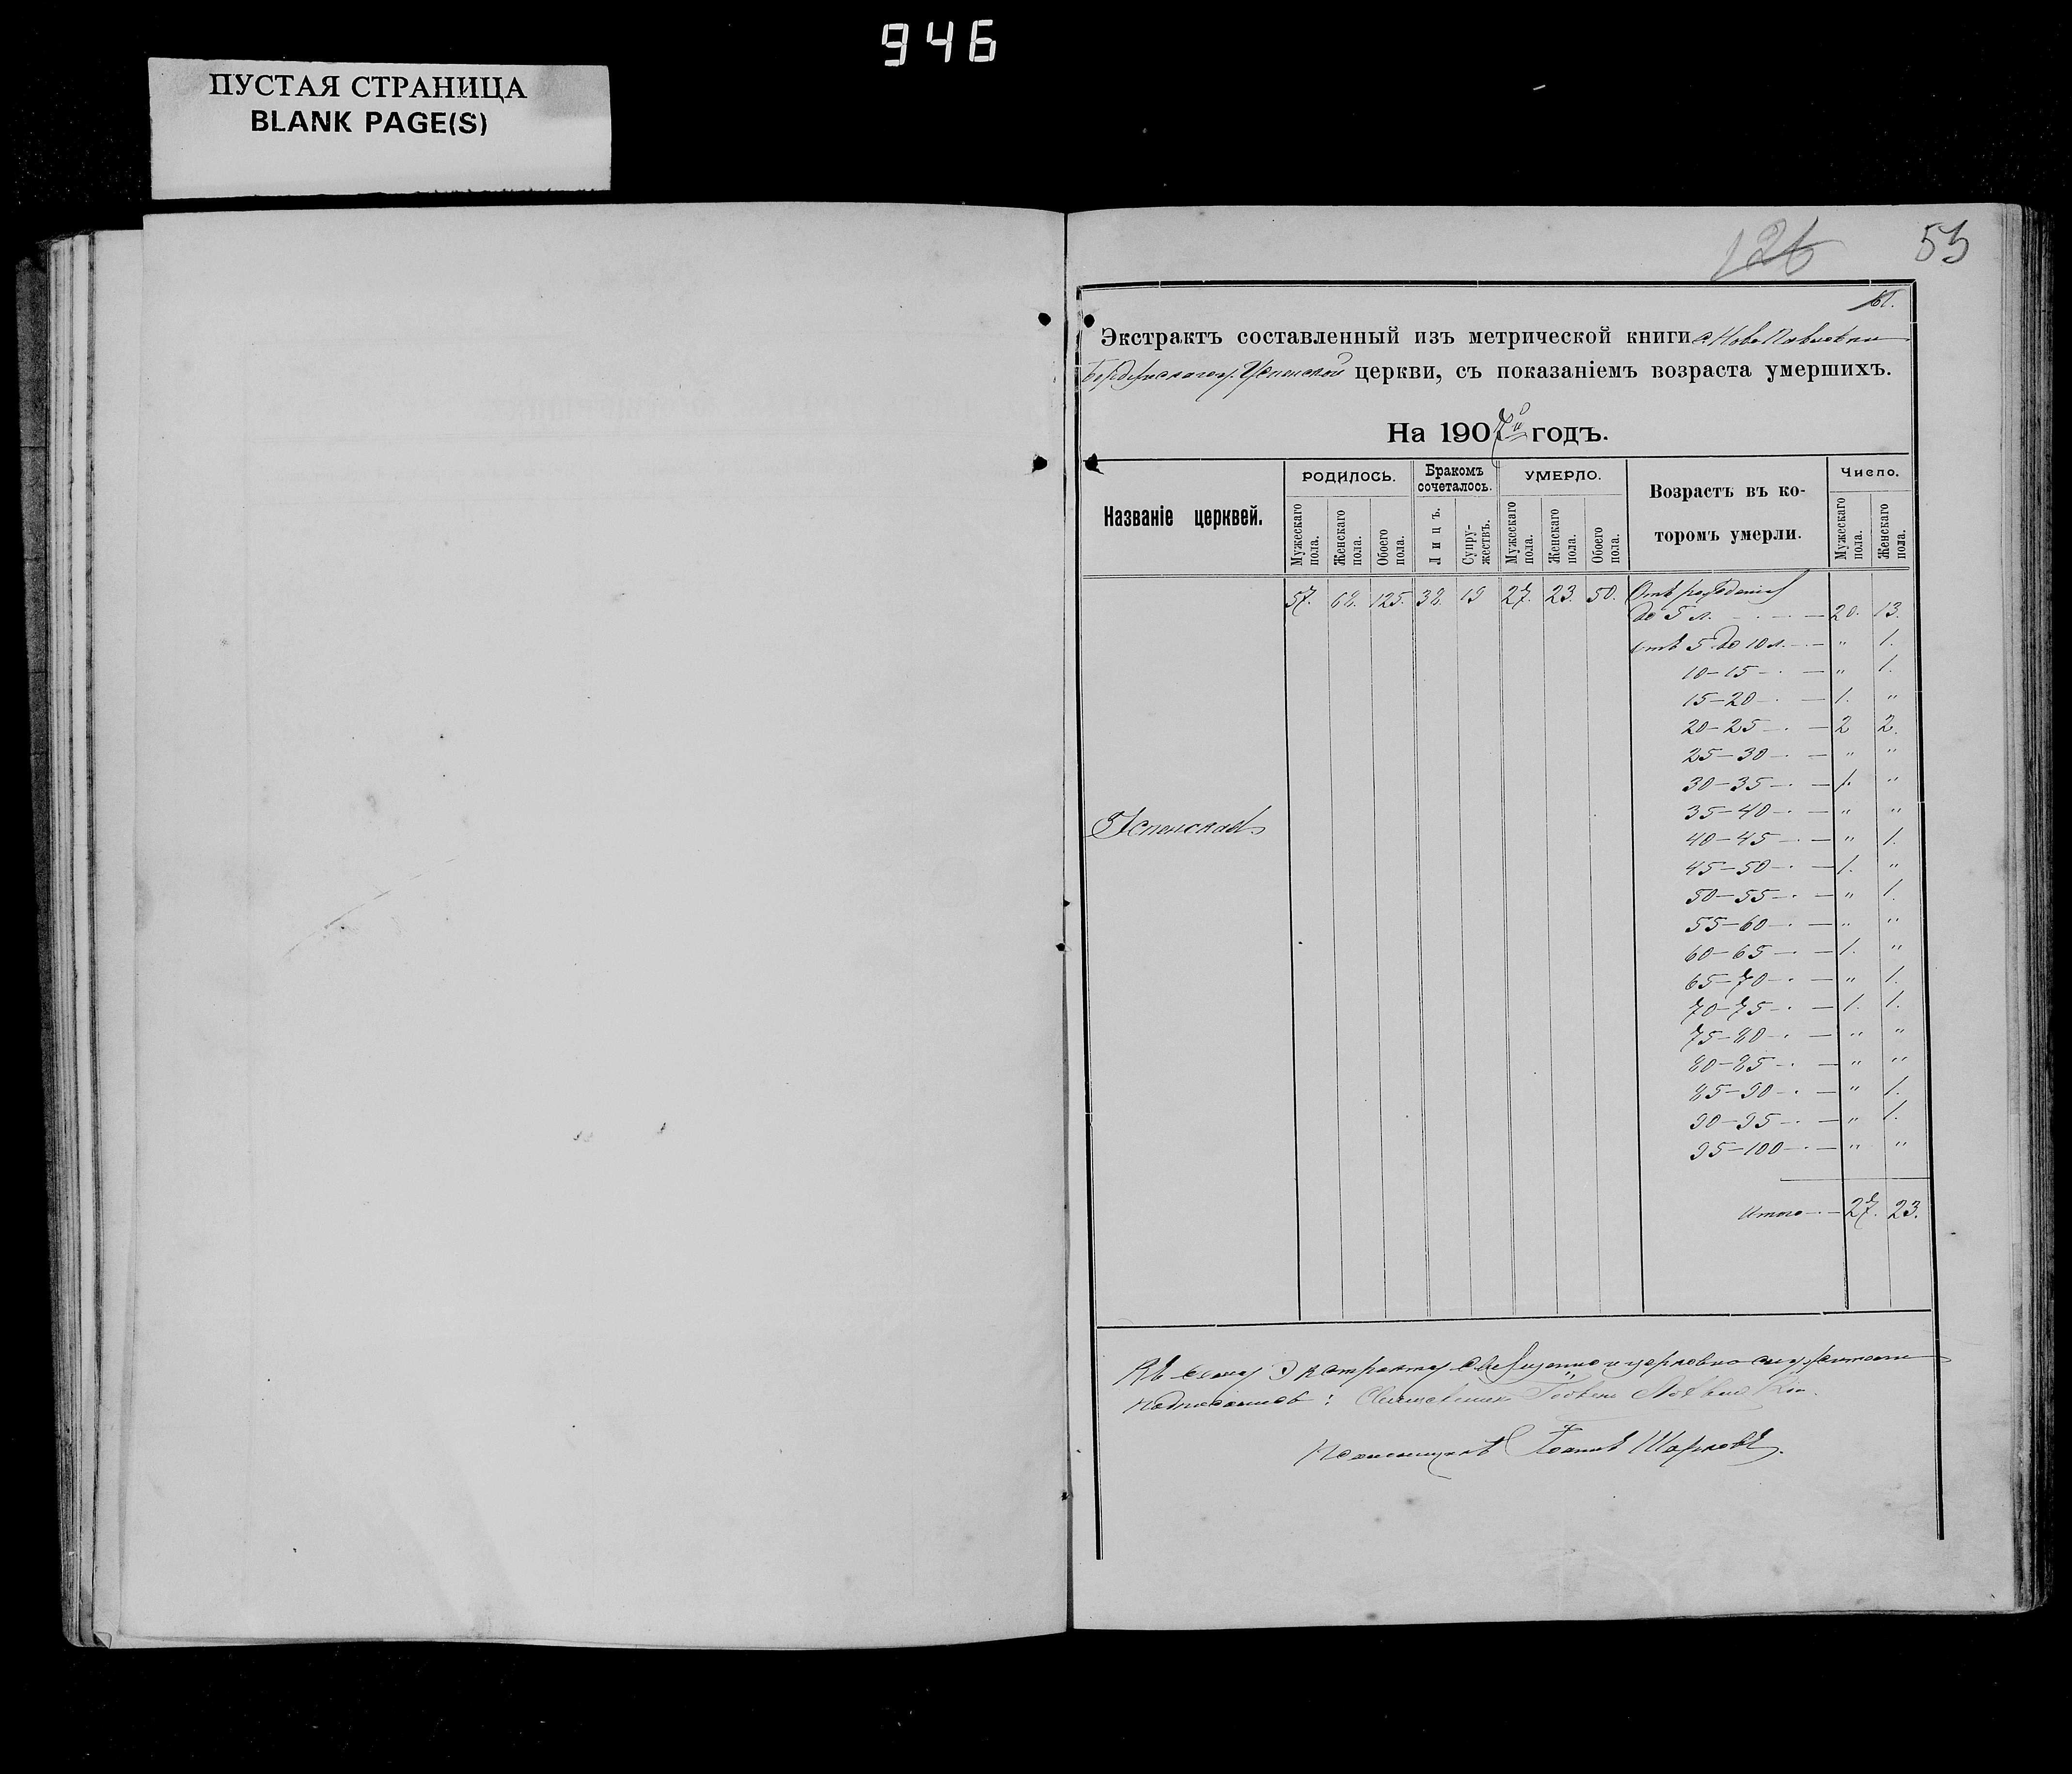 946
ПУСТАЯ СТРАНИЦА
BLANK PAGE(S)
126
55
61.
Экстрактъ составленный изъ метрической книги с. Ново Павловки
Бердянскаго у. Успенской церкви, съ показаніемъ возраста умершихъ.
На 1907й годъ.
Названіе церквей.
РОДИЛОСЬ.
Бракомъ сочеталось.
УМЕРЛО.
Возрастъ въ которомъ умерли.
Число.
Мужескаго пола.
Женскаго пола.
Обоего пола.
Лицъ.
Супружествъ.
Мужескаго пола.
Женскаго пола.
Обоего пола.
Мужескаго пола.
Женскаго пола.
57. 68. 125. 38. 19 27. 23. 50. Отъ рожденія
до 5 л. 20. 13.
отъ 5 до 10 л. " 1.
10-15 " 1.
15-20 1. "
20-25 2 2.
25-30 " "
30-35 1. "
35-40 " "
Успенская
40-45 " 1.
45-50 1. "
50-55 " 1.
55-60 " "
60-65 1. "
65-70 " 1.
70-75 1. 1.
75-80 " "
80-85 " "
85-90 " 1.
90-95 " 1.
95-100 " "
Итого 27. 23.
Къ сему Экстракту священно и церковно-служители
подписались: Священникъ
Псаломщикъ Іоаннъ Шарковъ.